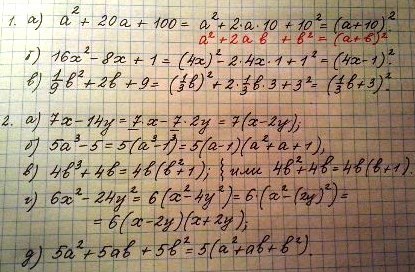 1. а) a² + 20a + 100 = a² + 2·a·10 + 10² = (a+10)².
a² + 2ab + b² = (a+b)²
б) 16x² - 8x + 1 = (4x)² - 2·4x·1 + 1² = (4x-1)².
в) 1/9 b² + 2b + 9 = (1/3 b)² + 2·1/3 b·3 + 3² = (1/3 b + 3)².
2. а) 7x - 14y = 7x - 7·2y = 7(x-2y);
б) 5a³ - 5 = 5(a³ - 1³) = 5(a-1)(a² + a + 1),
в) 4b³ + 4b = 4b(b² + 1); { или 4b² + 4b = 4b(b+1).
г) 6x² - 24y² = 6(x² - 4y²) = 6·(x² - (2y)²) =
= 6(x-2y)(x+2y),
д) 5a² + 5ab + 5b² = 5(a² + ab + b²).